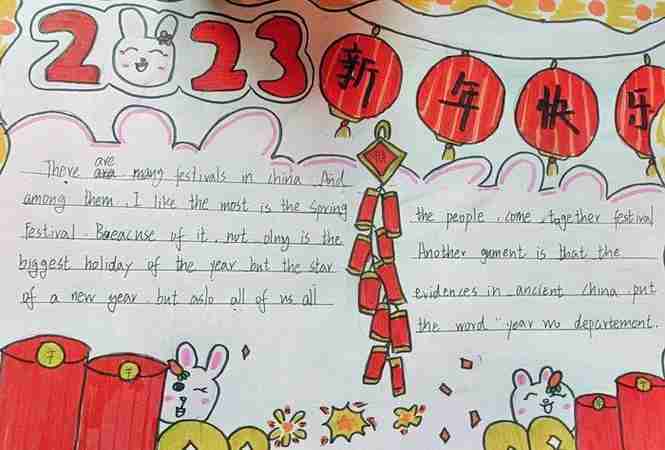 2023
新年快乐
There are many festivals in china. And
among them, I like the most is the Spring
Festival. Beacnse of it, not olny is the
biggest holiday of the year but the star
of a new year. but aslo all of us all
the people, come, together festival
Another gument is that the
evidences in ancient china put
the word "year wu departement.